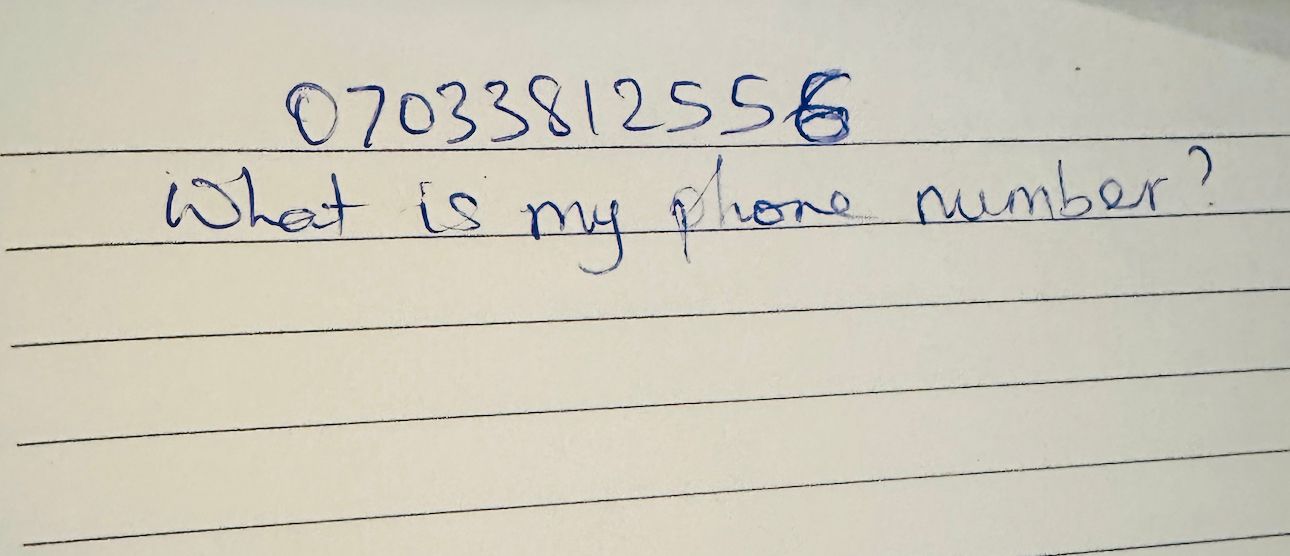 07033812556
What is my phone number?